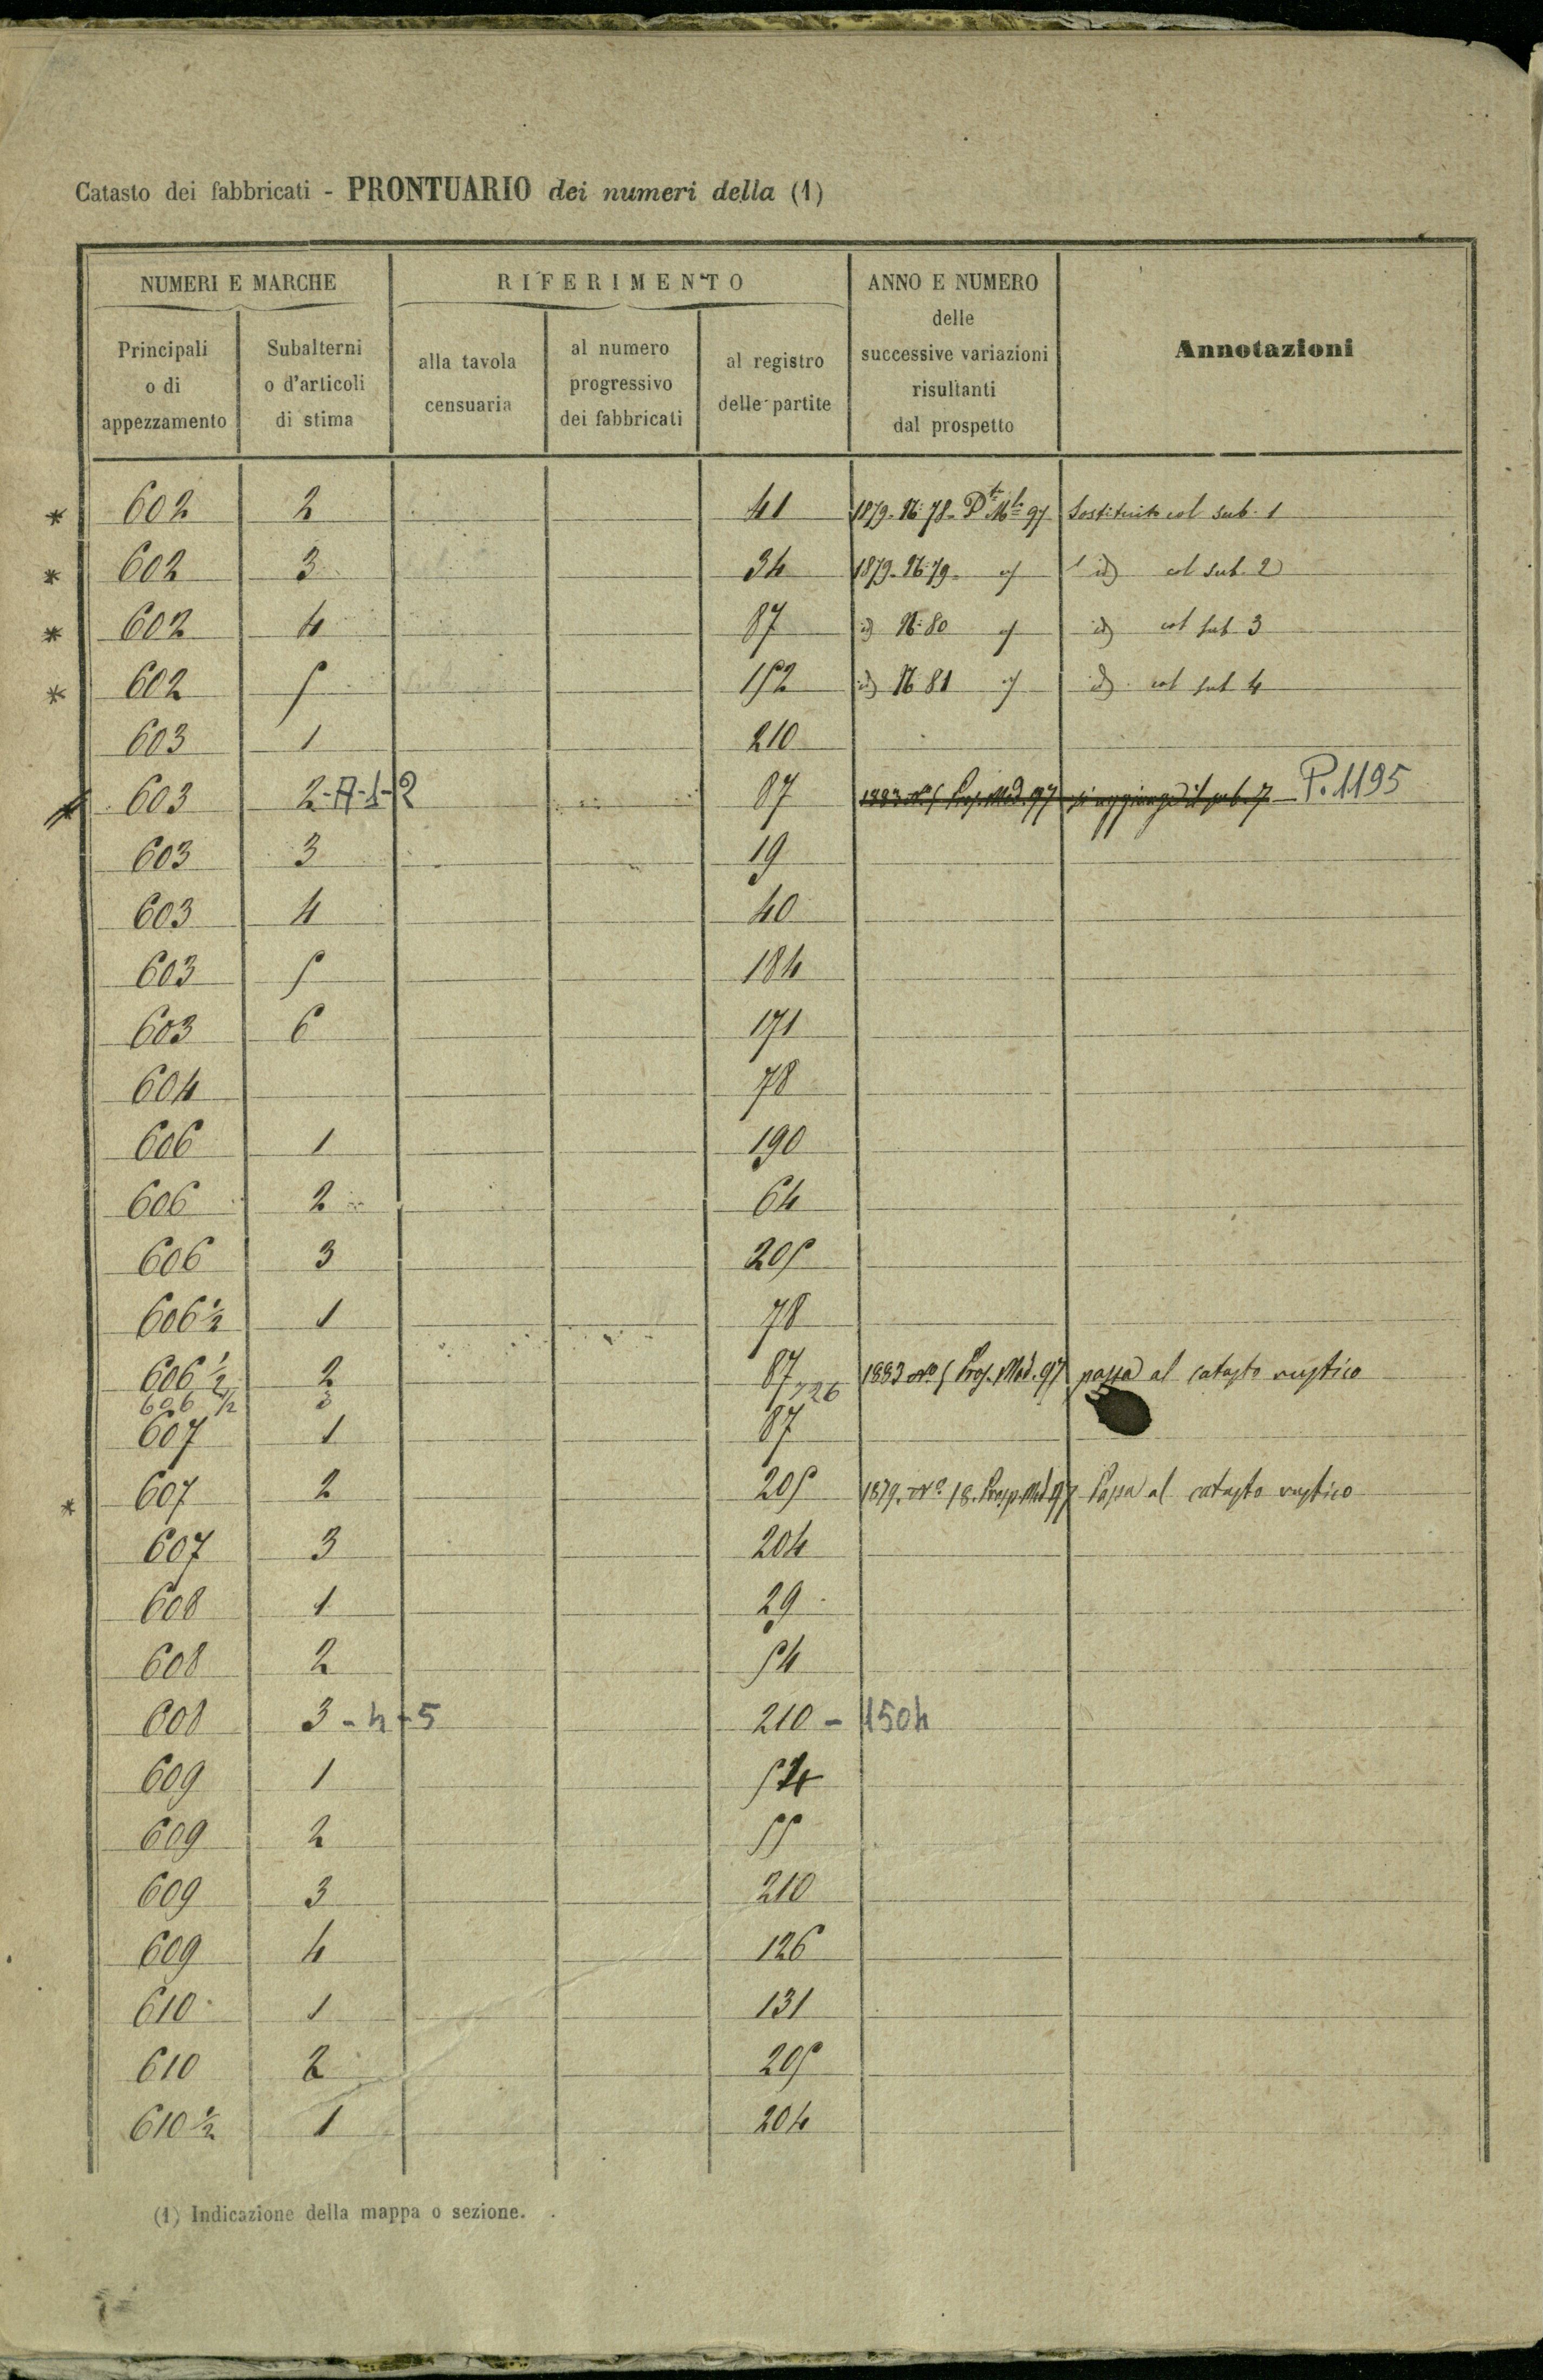 Catasto dei fabbricati - PRONTUARIO dei numeri della (1)
NUMERI E MARCHE
RIFERIMENTO
ANNO E NUMERO
delle
successive variazioni
risultanti
dal prospetto
Annotazioni
Principali
o di
appezzamento
Subalterni
o d'articoli
di stima
alla tavola
censuaria
al numero
progressivo
dei fabbricati
al registro
delle partite
* 602 2 41 1879. N: 78. 97 Sostituito col sub. 1
* 602 3 34 1879. N: 79. id col sub. 2
* 602 4 87 id N: 80 id col sub 3
* 602 5 152 id N 81 id col sub 4
603 1 210
* 603 2-A-1-2 87 1883 N° 5 Prosp. Mod. 97 si aggiunge il sub. 7 P. 1195
603 3 19
603 4 40
603 5 184
603 6 171
604 78
606 1 190
606 2 64
606 3 205
606 ½ 1 78
606 ½ 2 87 1883 N° 5 Prosp. Mod. 97 passa al catasto rustico
606 ½ 3 726
607 1 87
* 607 2 205 1879. N° 18. Prosp. Mod. 97 Passa al catasto rustico
607 3 204
608 1 29
608 2 54
608 3 - 4 - 5 210 - 1504
609 1 54
609 2 55
609 3 210
609 4 126
610 1 131
610 2 205
610 ½ 1 204
(1) Indicazione della mappa o sezione.